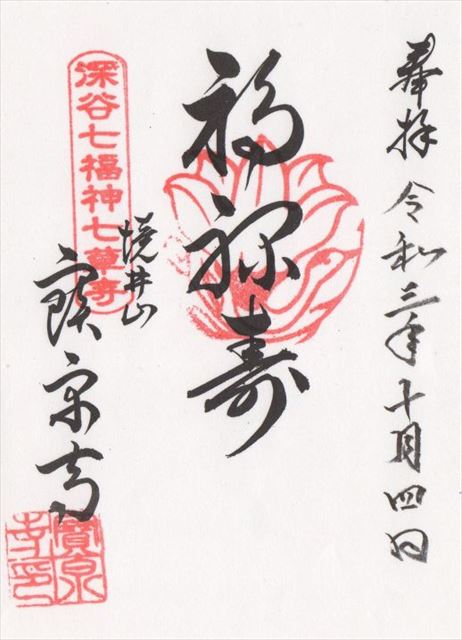 奉拝 令和三年十月四日
福禄寿
深谷七福神七草寺
境井山
寶泉寺
寶泉
寺印